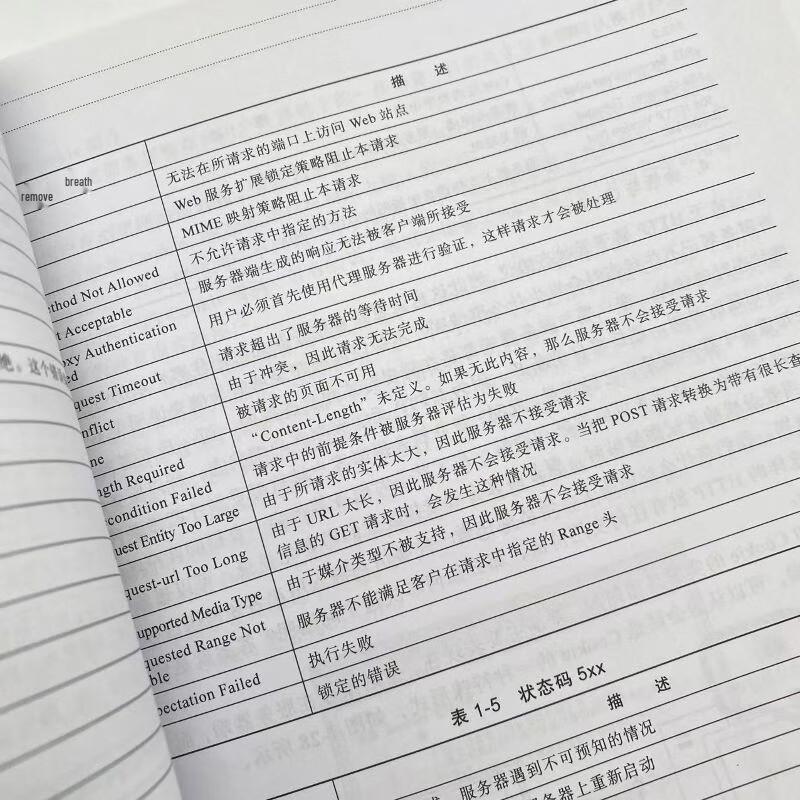 描 述
无法在所请求的端口上访问 Web 站点
Web 服务扩展锁定策略阻止本请求
MIME 映射策略阻止本请求
remove
breath
不允许请求中指定的方法
ethod Not Allowed
服务器端生成的响应无法被客户端所接受
t Acceptable
用户必须首先使用代理服务器进行验证，这样请求才会被处理
oxy Authentication
ed
请求超出了服务器的等待时间
quest Timeout
由于冲突，因此请求无法完成
nflict
被请求的页面不可用
ne
“Content-Length” 未定义。如果无此内容，那么服务器不会接受请求
ngth Required
请求中的前提条件被服务器评估为失败
condition Failed
由于所请求的实体太大，因此服务器不接受请求
uest Entity Too Large
由于 URL 太长，因此服务器不会接受请求。当把 POST 请求转换为带有很长查
信息的 GET 请求时，会发生这种情况
quest-url Too Long
由于媒介类型不被支持，因此服务器不会接受请求
upported Media Type
服务器不能满足客户在请求中指定的 Range 头
quested Range Not
ble
执行失败
pectation Failed
锁定的错误
表 1-5 状态码 5xx
描 述
服务器遇到不可预知的情况
务器上重新启动